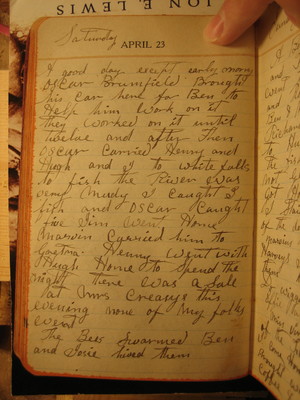 ION E. LEWIS
Saturday
APRIL 23
A good day except early morn
Oscar Brumfield Brought
his car here for Ben to
Help him work on it
they worked on it until
twelve and after then
Oscar Carried Henry and
Hugh and I to White falls
to fish the River was
very Mudy I caught 1
fish and Oscar Caught
five Jim Went Home
Marvin Carried him to
Henny Went with
Hugh Home to Spend the
night there was a Sale
at Mrs this
evening none of my folks
went
The Bees Swarmed Ben
and hived them